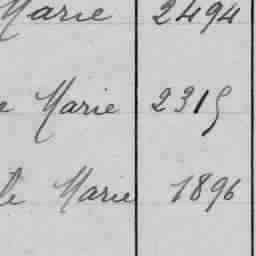 Marie 2494
e Marie 2315
le Marie 1896